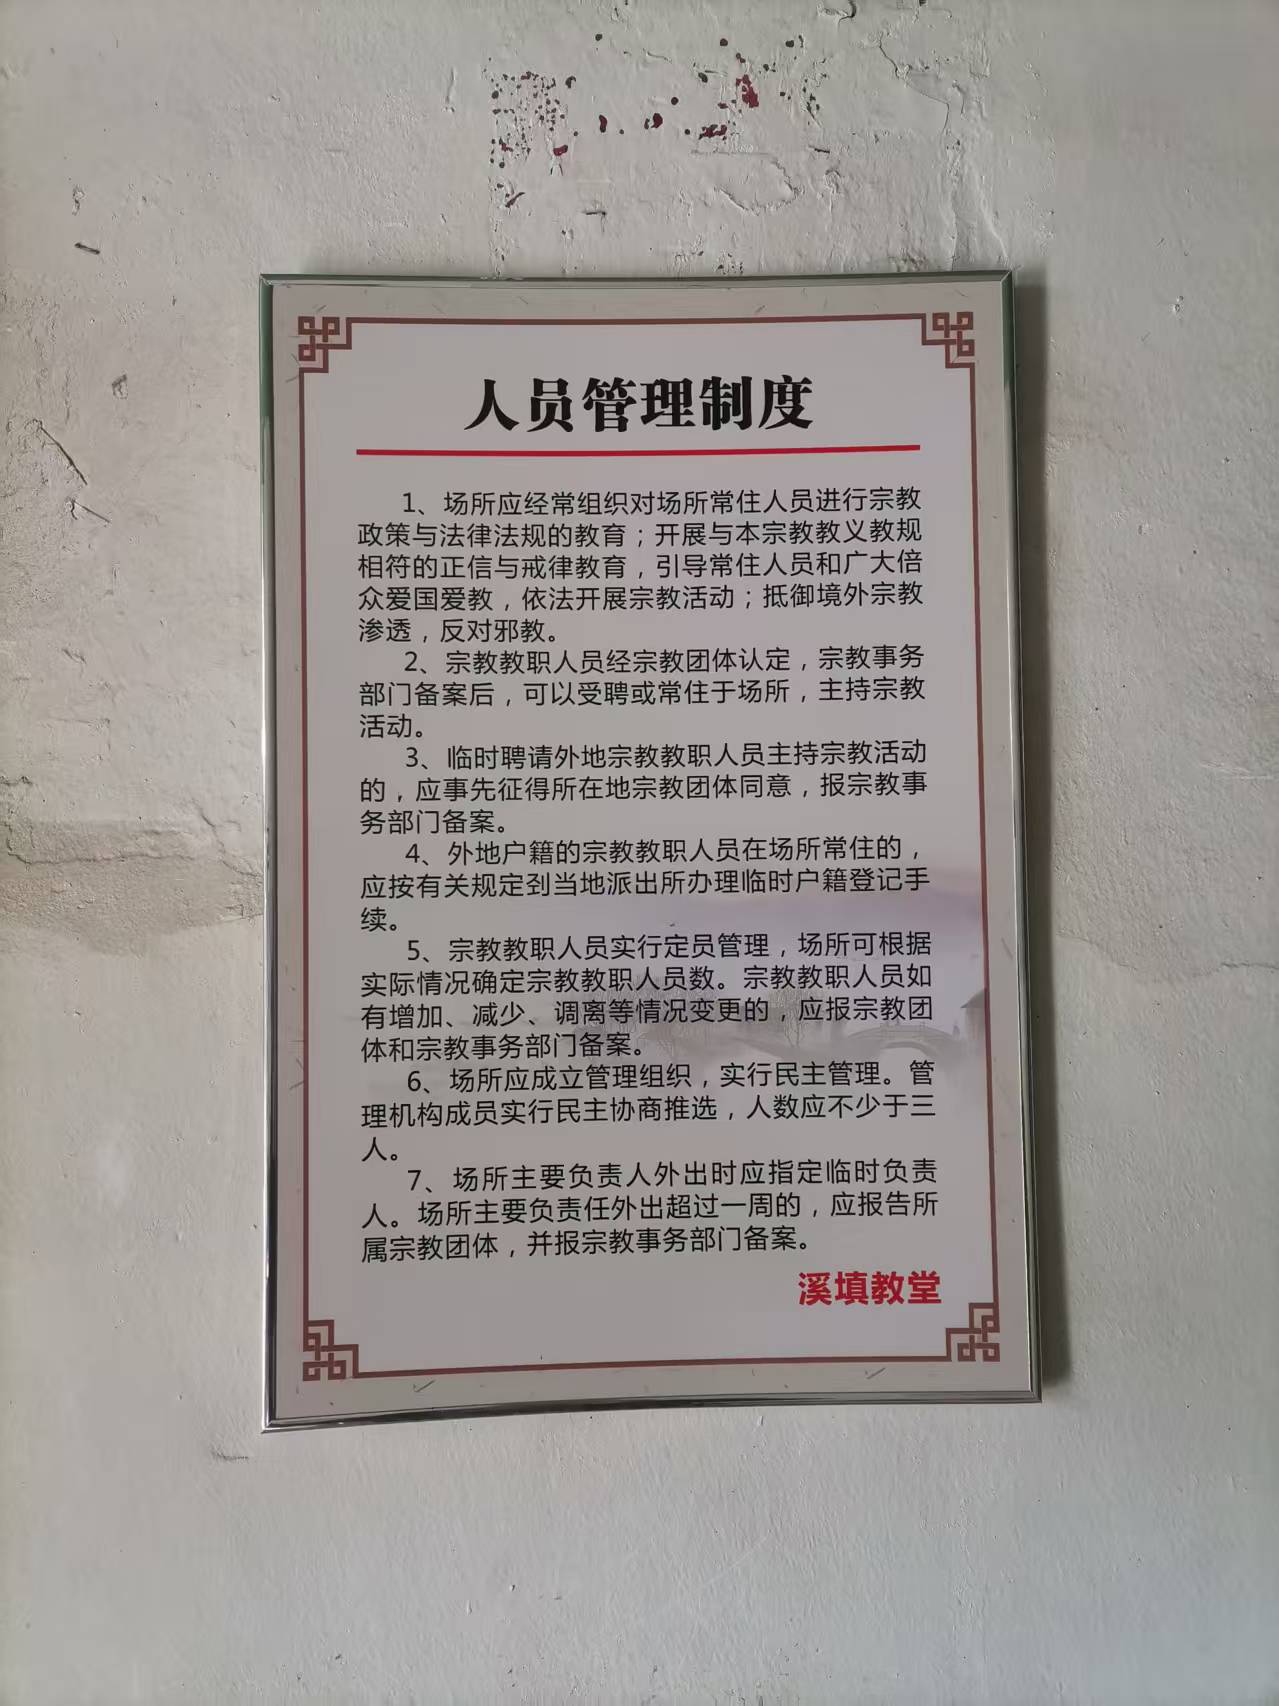 人员管理制度
1、场所应经常组织对场所常住人员进行宗教
政策与法律法规的教育；开展与本宗教教义教规
相符的正信与戒律教育，引导常住人员和广大倍
众爱国爱教，依法开展宗教活动；抵御境外宗教
渗透，反对邪教。
2、宗教教职人员经宗教团体认定，宗教事务
部门备案后，可以受聘或常住于场所，主持宗教
活动。
3、临时聘请外地宗教教职人员主持宗教活动
的，应事先征得所在地宗教团体同意，报宗教事
务部门备案。
4、外地户籍的宗教教职人员在场所常住的，
应按有关规定到当地派出所办理临时户籍登记手
续。
5、宗教教职人员实行定员管理，场所可根据
实际情况确定宗教教职人员数。宗教教职人员如
有增加、减少、调离等情况变更的，应报宗教团
体和宗教事务部门备案。
6、场所应成立管理组织，实行民主管理。管
理机构成员实行民主协商推选，人数应不少于三
人。
7、场所主要负责人外出时应指定临时负责
人。场所主要负责任外出超过一周的，应报告所
属宗教团体，并报宗教事务部门备案。
溪填教堂